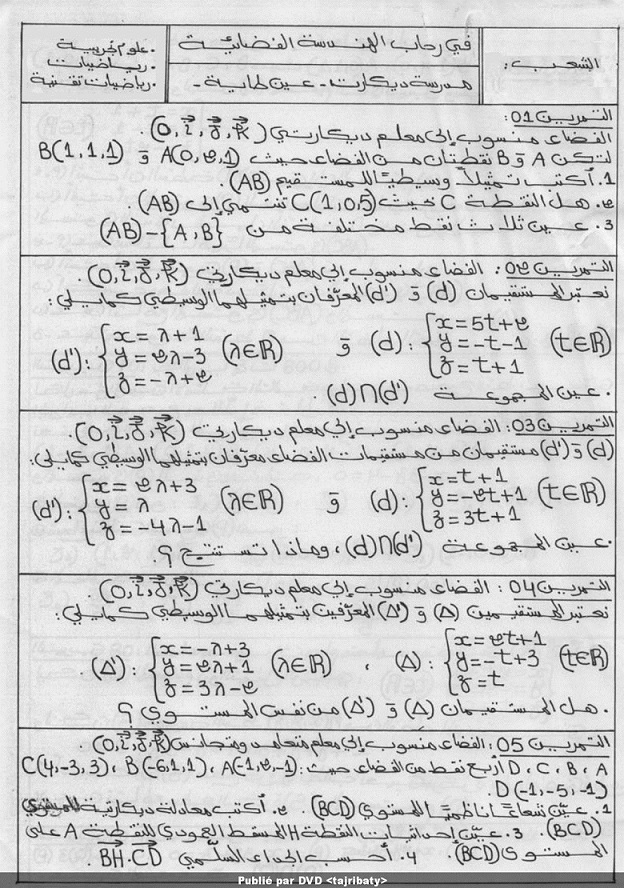 في رحاب الهندسة الفضائية
مدرسة ديكارت - عين طاية -
الشعب:
. علوم تجريبية
. رياضيات
. رياضيات تقنية
التمرين 01:
الفضاء منسوب إلى معلم ديكارتي (O, i, j, k).
لتكن A و B نقطتان من الفضاء حيث A(0,2,1) و B(1,1,1)
1. أكتب تمثيلا وسيطيا للمستقيم (AB)
2. هل النقطة C حيث C(1,0,5) تنتمي إلى (AB)
3. عين ثلاث نقط مختلفة من (AB)-{A,B}
التمرين 02: الفضاء منسوب إلى معلم ديكارتي (O, i, j, k).
نعتبر المستقيمان (d) و (d') المعرفان بتمثيلهما الوسيطي كمايلي:
(d): { x=5t+2 ، y=-t-1 ، z=t+1 (t∈ℝ) و (d'): { x=λ+1 ، y=2λ-3 ، z=-λ+2 (λ∈ℝ)
. عين المجموعة (d)∩(d')
التمرين 03: الفضاء منسوب إلى معلم ديكارتي (O, i, j, k).
(d) و (d') مستقيمان من مستقيمات الفضاء معرفان بتمثيلهما الوسيطي كمايلي:
(d): { x=t+1 ، y=-2t+1 ، z=3t+1 (t∈ℝ) و (d'): { x=2λ+3 ، y=λ ، z=-4λ-1 (λ∈ℝ)
. عين المجموعة (d)∩(d')، وماذا تستنتج ؟
التمرين 04: الفضاء منسوب إلى معلم ديكارتي (O, i, j, k).
نعتبر المستقيمين (Δ) و (Δ') المعرفين بتمثيلهما الوسيطي كمايلي:
(Δ): { x=2t+1 ، y=-t+3 ، z=t (t∈ℝ) ، (Δ'): { x=-λ+3 ، y=2λ+1 ، z=3λ-2 (λ∈ℝ)
. هل المستقيمان (Δ) و (Δ') من نفس المستوي ؟
التمرين 05: الفضاء منسوب إلى معلم متعامد ومتجانس (O, i, j, k).
A ، B ، C ، D أربع نقط من الفضاء حيث: A(1,2,-1) ، B(-6,1,1) ، C(4,-3,3)
D(-1,-5,-1)
1. عين شعاعا ناظميا للمستوي (BCD). 2. أكتب معادلة ديكارتية للمستوي
(BCD). 3. عين إحداثيات النقطة H المسقط العمودي للنقطة A على
المستوي (BCD). 4. أحسب الجداء السلمي BH.CD
Publié par DVD <tajribaty>